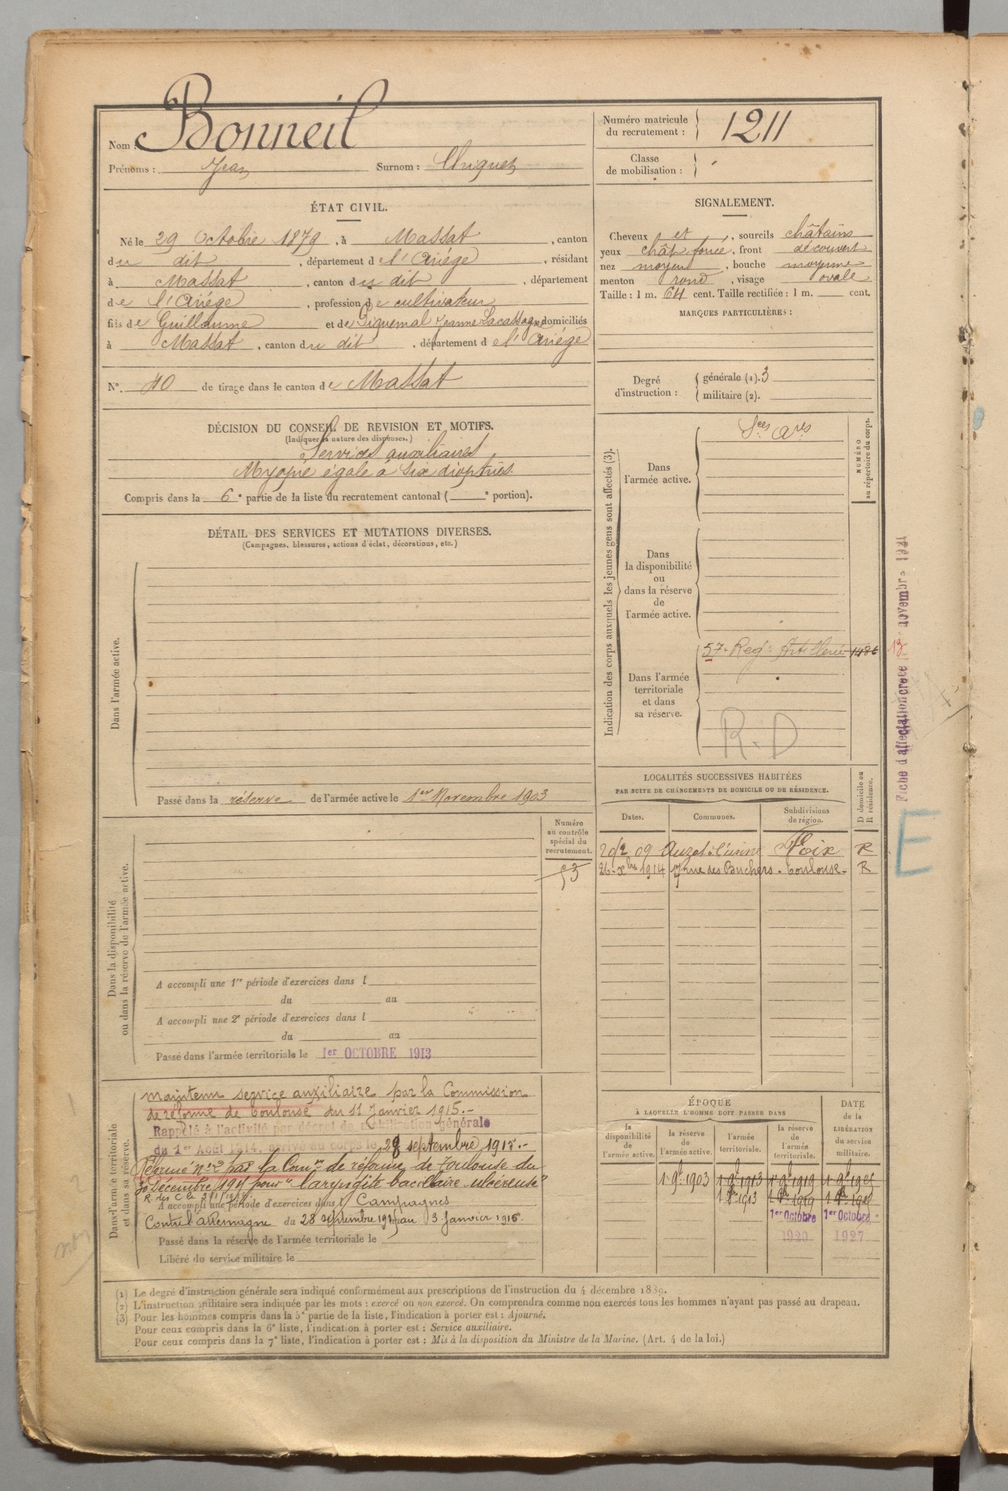 Nom Bonneil
Prénoms : Jean Surnom : Chiquet
ÉTAT CIVIL.
Né le 29 Octobre 1879, à Massat, canton
du dit, département de l'Ariége, résidant
à Massat, canton du dit, département
de l'Ariége, profession de cultivateur
fils de Guillaume et de Siguemal Jeanne Lacassagne domiciliés
à Massat, canton du dit, département de l'Ariége
N°. 40 de tirage dans le canton de Massat
DÉCISION DU CONSEIL DE REVISION ET MOTIFS.
(Indiquer la nature des dispenses.)
Services auxiliaires
Myopie égale à six dioptries
Compris dans la 6e partie de la liste du recrutement cantonal ( e portion).
DÉTAIL DES SERVICES ET MUTATIONS DIVERSES.
(Campagnes, blessures, actions d'éclat, décorations, etc.)
Dans l'armée active.
Passé dans la réserve de l'armée active le 1er Novembre 1903
Numéro
au contrôle
spécial du
recrutement.
53
Dans la disponibilité
ou dans la réserve de l'armée active.
A accompli une 1re période d'exercices dans l
du au
A accompli une 2e période d'exercices dans l
du au
Passé dans l'armée territoriale le 1er OCTOBRE 1913
Dans l'armée territoriale
et dans sa réserve.
maintenu service auxiliaire par la Commission
de réforme de Toulouse du 11 Janvier 1915.-
Rappelé à l'activité par décret de mobilisation générale
du 1er Août 1914, arrivé au corps le 28 septembre 1917.-
Réformé n° 2 par la Comon de réforme de Toulouse du
Décembre 1917 pour "laryngite bacillaire ulcéreuse"
A accompli une période d'exercices dans l Campagnes
Contre l'allemagne du 28 septembre 1917 au 3 Janvier 1918.
Passé dans la réserve de l'armée territoriale le
Libéré du service militaire le
Numéro matricule
du recrutement : 1211
Classe
de mobilisation :
SIGNALEMENT.
Cheveux et, sourcils châtains
yeux chât foncé, front découvert
nez moyen, bouche moyenne
menton rond, visage ovale
Taille : 1 m. 64 cent. Taille rectifiée : 1 m. cent.
MARQUES PARTICULIÈRES :
Degré
d'instruction :
générale (1). 3
militaire (2).
Indication des corps auxquels les jeunes gens sont affectés (3).
NUMÉRO
au répertoire du corps.
Dans
l'armée active.
Sces ares
Dans
la disponibilité
ou
dans la réserve
de
l'armée active.
Dans l'armée
territoriale
et dans
sa réserve.
57e Regt Artillerie 1486
R.D
Fiche d'affectation créée 13 novembre 1921
E
LOCALITÉS SUCCESSIVES HABITÉES
PAR SUITE DE CHANGEMENTS DE DOMICILE OU DE RÉSIDENCE.
D domicile ou
R résidence.
Dates. Communes. Subdivisions
de région.
Auzat l'usine Foix R
26 Xbre 1914 7 rue des Buchers - Toulouse - R
ÉPOQUE
À LAQUELLE L'HOMME DOIT PASSER DANS
DATE
de la
LIBÉRATION
du service
militaire.
la
disponibilité
de
l'armée active.
la réserve
de
l'armée active.
l'armée
territoriale.
la réserve
de
l'armée
territoriale.
1 9bre 1903 1 9bre 1913 1 9bre 1919 1 9bre 1925
1er Octobre 1er Octobre
1920 1927
(1) Le degré d'instruction générale sera indiqué conformément aux prescriptions de l'instruction du 4 décembre 1889.
(2) L'instruction militaire sera indiquée par les mots : exercé ou non exercé. On comprendra comme non exercés tous les hommes n'ayant pas passé au drapeau.
(3) Pour les hommes compris dans la 5e partie de la liste, l'indication à porter est : Ajourné.
Pour ceux compris dans la 6e liste, l'indication à porter est : Service auxiliaire.
Pour ceux compris dans la 7e liste, l'indication à porter est : Mis à la disposition du Ministre de la Marine. (Art. 4 de la loi.)